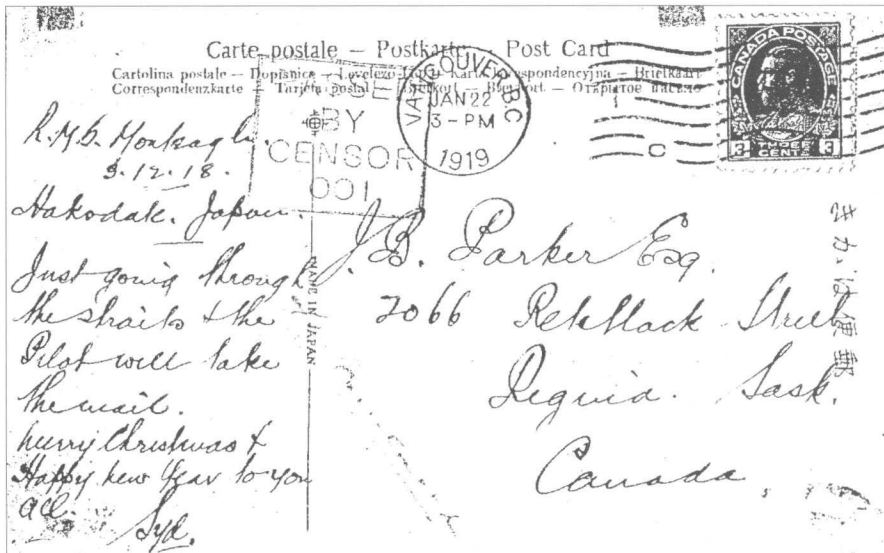 Carte postale – Postkarte – Post Card
Cartolina postale – Dopisnice – Levelező-Lap – Karta korespondencyjna – Briefkaart
Correspondenzkarte – Tarjeta postal – Brefkort – Brevkort – Открытое письмо
BY
CENSOR
001
VANCOUVER B.C
JAN 22
3-PM
1919
C
CANADA POSTAGE
3 THREE CENTS 3
郵便はかき
MADE IN JAPAN
R.M.S. Monteagle.
3.12.18.
Hakodate. Japan.
Just going through
the straits & the
Pilot will take
the mail.
Merry Christmas &
Happy New Year to you
all.
Syd.
J.B. Parker Esq.
2066 Retallack Street
Regina. Sask.
Canada.